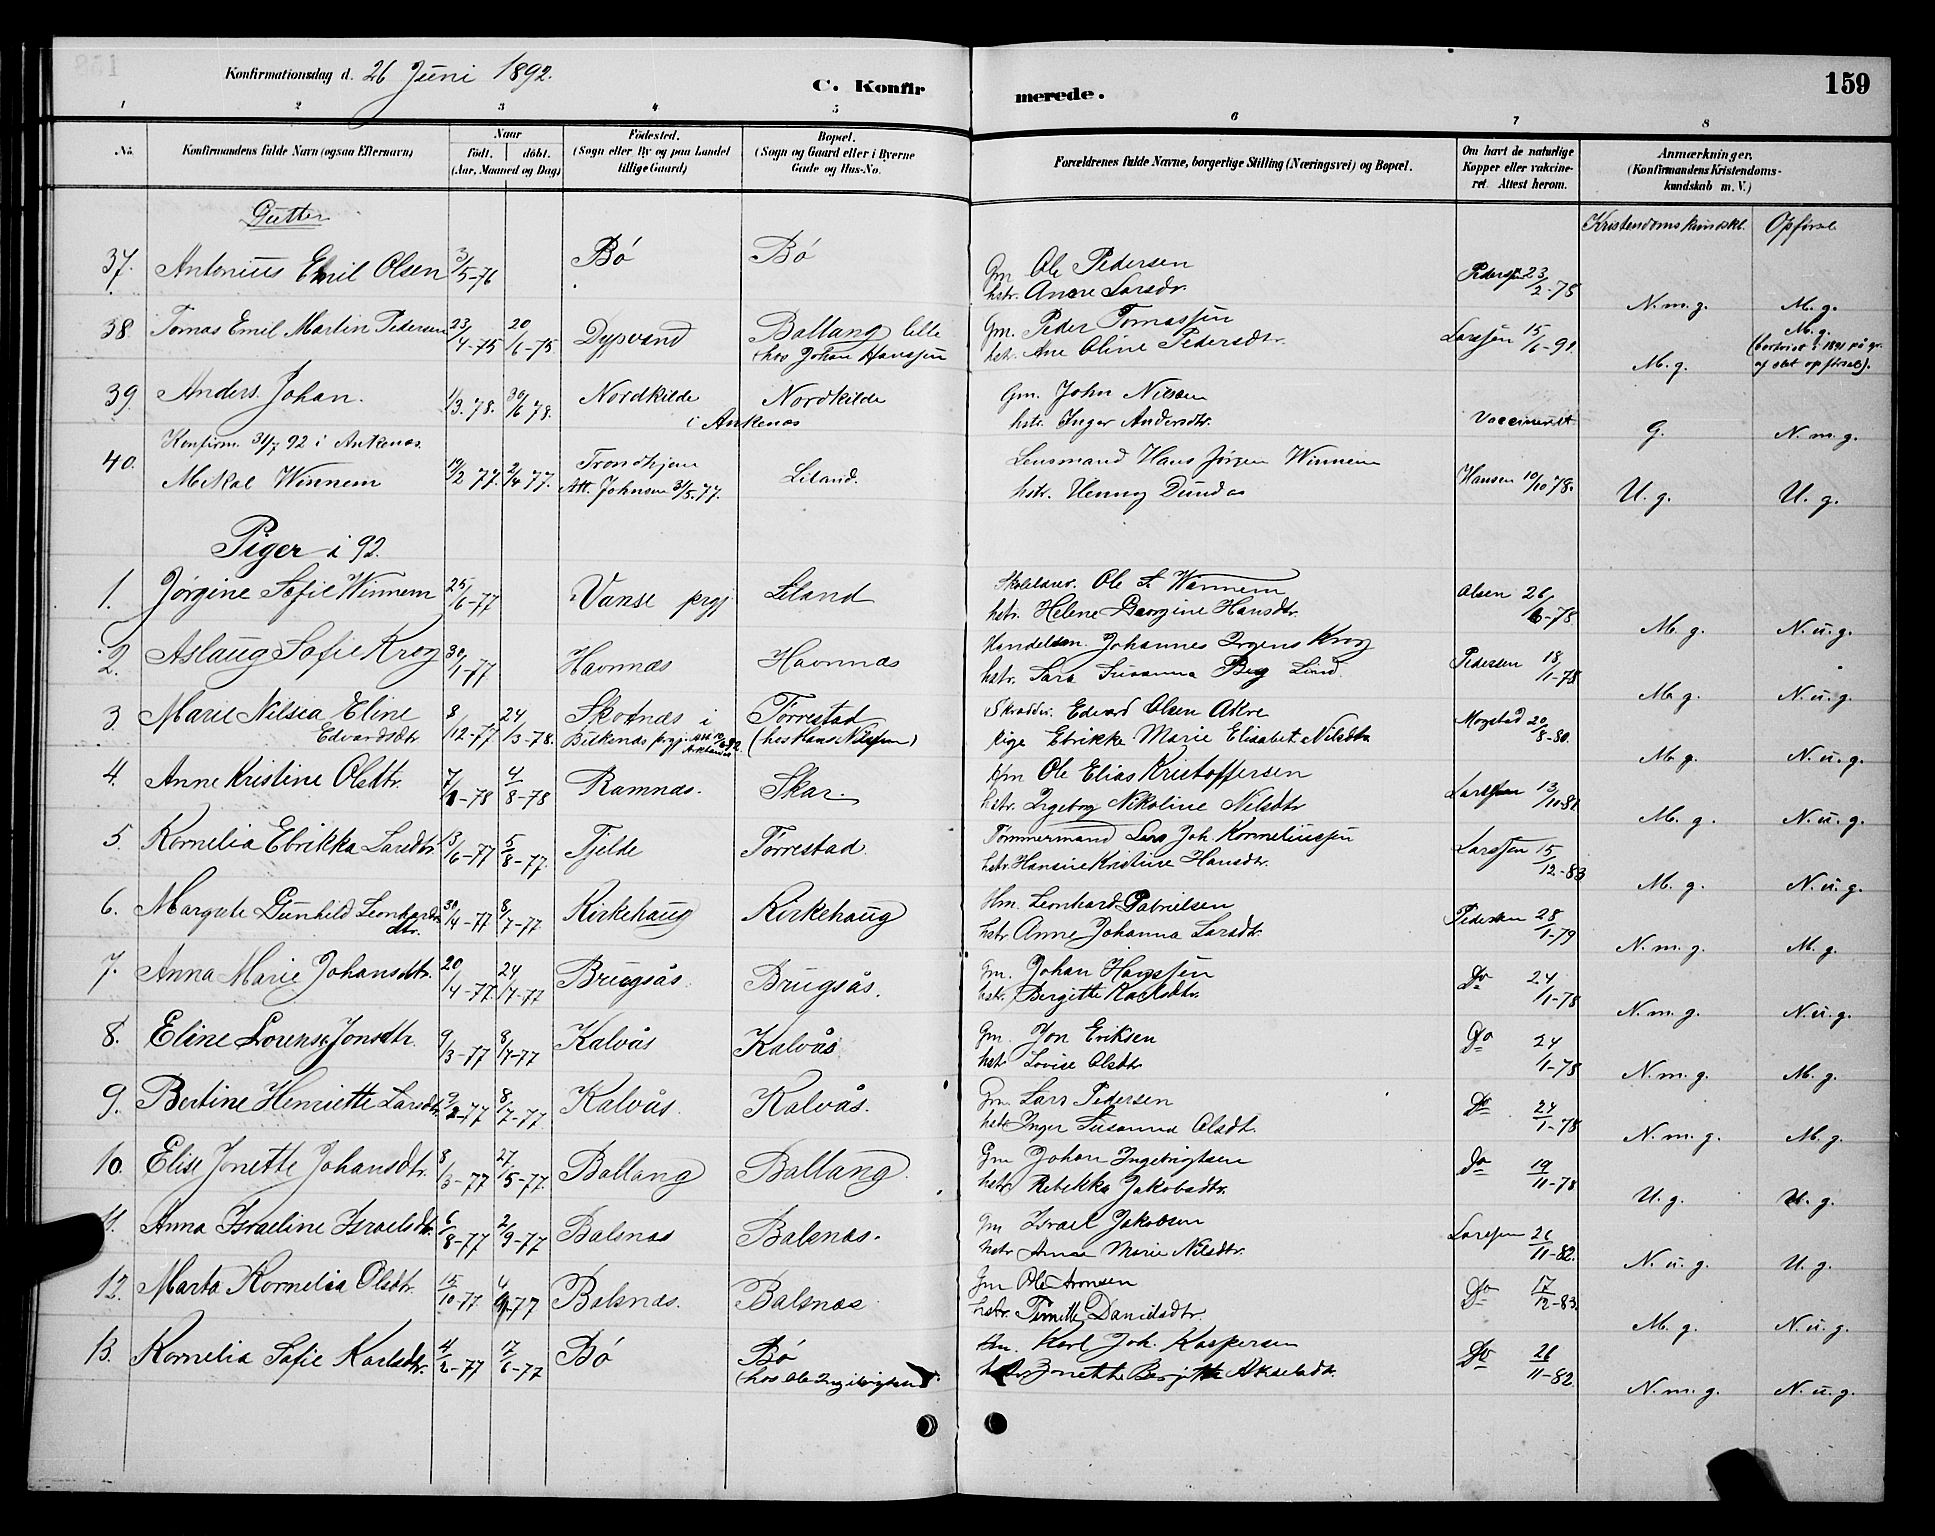 Konfirmationsdag d. 26 Juni 1892.
C. Konfirmerede.
159
1 2 3 4 5 6 7 8
No. Konfirmandens fulde Navn (ogsaa Efternavn)
Naar födt. döbt. (Aar, Maaned og Dag)
Födested. (Sogn eller By og paa Landet tillige Gaard)
Bopæl. (Sogn og Gaard eller i Byerne Gade og Hus-No.
Forældrenes fulde Navne, borgerlige Stilling (Næringsvei) og Bopæl.
Om havt de naturlige Kopper eller vakcineret. Attest herom.
Anmærkninger. (Konfirmandens Kristendomskundskab m. V.)
Gutter
Kristendomskundskb. Opførsel
37. Antonius Emil Olsen 3/5-76 Bö Bö Gm Ole Pedersen Pedersen 23/2-78
hstr. Ane Larsdr. N. m. g. M. g.
38 Tomas Emil Martin Pedersen 23/4-75 20/6-75 Dypvand Ballang lille Gm. Peder Tomassen Larssen 15/6-91 M. g.
hos Johan Hanssen hstr. Ane Oline Pedersdtr. M. g. (bortvist i 1891 på gr. af slet opførsel).
39. Anders Johan. 1/3.78. 30/6 78. Nordkilde Nordkilde Gm. John Nilsen
i Ankenæs hstr. Inger Andersdtr. Vaccineret G. N. m. g.
Konfirm. 31/7 92 i Ankenæs
40. Mikal Winnem 19/2 77. 2/4 77. Trondhjem Liland. Lensmand Hans Jörgen Winnem Hansen 10/10 78.
Att. Johnsen 31/5.77. hstr. Henny Dundas U. g. U. g.
Piger i 92.
1. Jörgine Sofie Winnem 25/6-77 Vanse prgj Liland Ole S. Winnem Olsen 26/6-78
hstr. Helene Georgine Hansdtr. M. g. N. u. g.
2. Aslaug Sofie Krog 30/1-77 Havnnæs Havnnæs Handelsm. Johannes Irgens Krog Pedersen 18/1-78
hstr. Sara Susanna Lind. M. g. N. u. g.
3 Marie Nilsea Eline 8/12-77 24/3-78. Skotnæs i Torrestad Skrædder. Edvard Olsen Akre Mogstad 20/8-80.
Edvardsdtr (hos Hans Nilssen) Pige Ebrikke Marie Elisabet Nilsdtr M. g. N. u. g.
4. Anne Kristine Olsdtr. 7/1-78 4/8-78 Ramnæs. Skar. Hm Ole Elias Kristoffersen Larssen 13/10-81.
hstr. Ingeborg Nikoline Nilsdtr M. g. N. u. g.
5. Kornelia Ebrikka Larsdtr. 13/6-77 5/8-77. Tjelde Torrestad. Tömmermand Lars Joh. Korneliussen Larssen 15/12-83
hstr. Hansine Kristine Hansdtr. M. g. N. u. g.
6. Margrete Gunhild Leonhards 30/4-77 8/7-77. Kirkehaug Kirkehaug Hm. Leonhard Gabrielsen Pedersen 28/1-79
dtr. hstr Anne Johanna Larsdtr. N. m. g. M. g.
7. Anna Marie Johansdtr. 20/4-77. 24/4-77 Brugsås. Brugsås. Gm. Johan Hanssen Do 24/1-78
hstr. Bergitte Karlsdtr. N. m. g. N. u. g.
8. Eline Lorense Jonsdtr. 9/3-77 8/7-77 Kalvås Kalvås Gm. Jon Eriksen Do 24/1-78
hstr Lovise Olsdtr N. m. g. M. g.
9. Bertine Henriette Larsdtr. 9/2-77 8/7-77 Kalvås. Kalvås. Gm. Lars Pedersen Do 24/1-78
hstr Inger Susanna Olsdtr. N. m. g. M. g.
10. Elise Jonette Johansdtr. 8/3-77 27/5-77. Ballang Ballang. Gm Johan Ingebrigtsen Do 19/11-78
hstr. Rebekka Jakobsdtr. U. g. U. g.
11. Anna Israeline Israelsdtr. 6/8-77 2/9-77 Balsnæs Balsnæs. Gm Israel Jakobsen Larssen 26/11-82.
hstr Anne Marie Nilsdtr. N. u. g. U. g.
12. Marta Kornelia Olsdtr. 15/10-77 Balsnæs. Balsnæs Gm Ole Aronsen Do 17/12-83.
hstr. Danielsdtr. M. g. N. u. g.
13. Kornelia Sofie Karlsdtr. 4/2-77 17/6-77 Bö Bö Hm. Karl Joh. Kaspersen Do 26/11-82.
(hos Ole Ingebrigtsen) hstr Jonette Bergitte Akselsdtr. N. m. g. N. u. g.